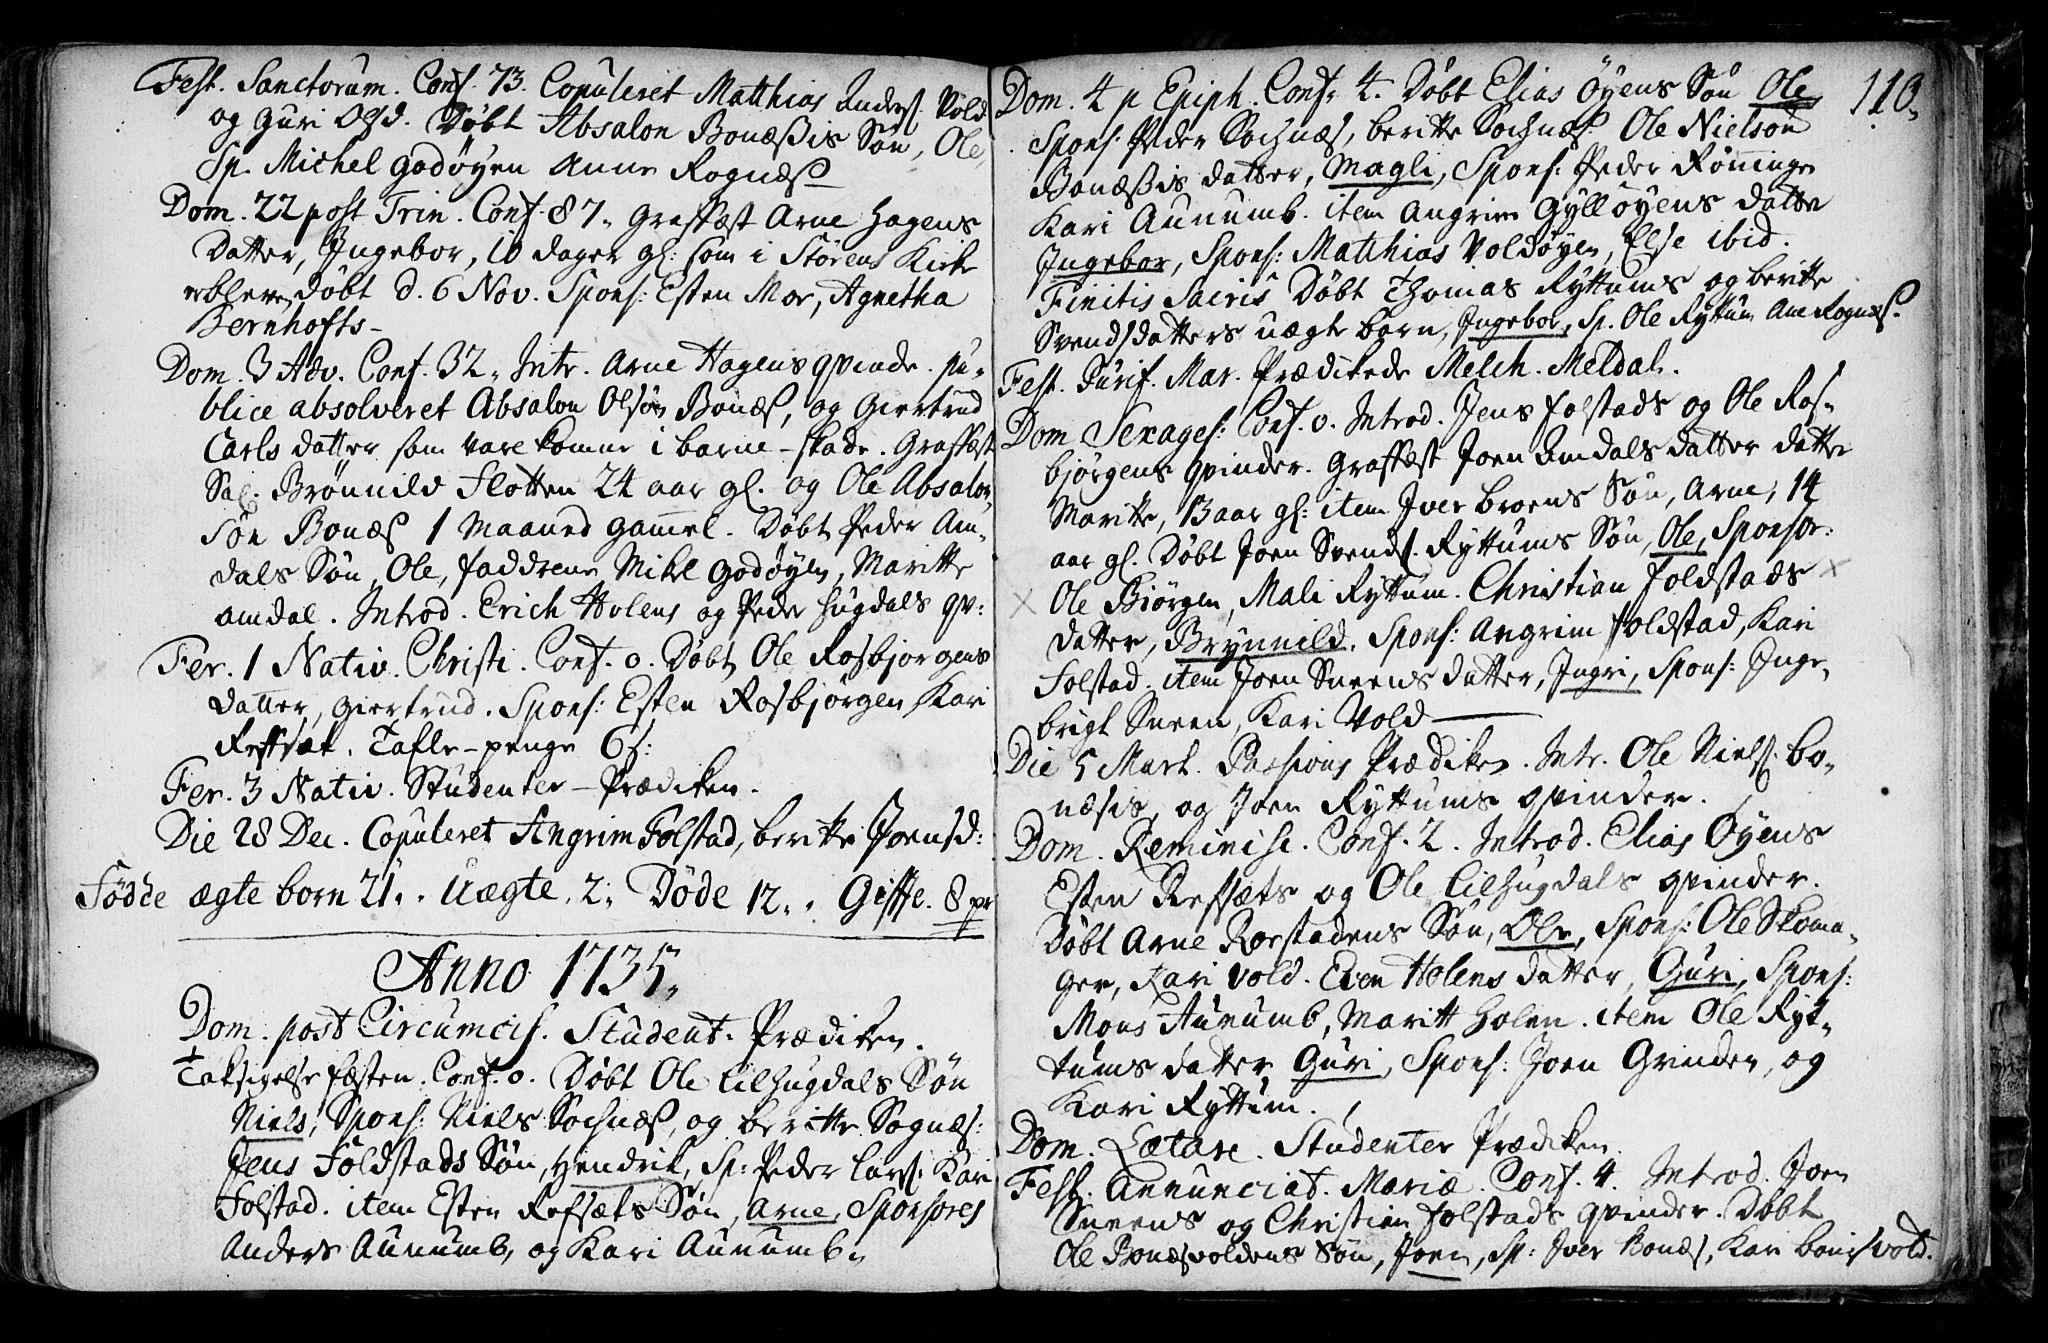 Fest. Sanctorum. Conf. 73. Copuleret Matthias Anders. Vold
og Guri Olsd. Døbt Absalon Bonæssis Søn, Ole,
Sp. Michel Godøyen Anne Rognæss
Dom. 22 post Trin. Conf. 87. Graffæst Arne Hagens
Datter, Ingebor, 10 dager gl: som i Størens Kirke
er bleven døbt d. 6 Nov. Spons: Esten Mor, Agnetha
Bernhofts
Dom. 3 Adv. Conf. 32. Intr. Arne Hagens qvinde. pu-
blice absolveret Absalon Olsøn Bonæs, og Giertrud
Carls datter som vare komne i barne-skade. Graffæst
Sal. Brønnild Flotten 24 aar gl. og Ole Absalon
søn Bonæs 1 Maaned gammel. Døbt Peder Am-
dals Søn, Ole, faddrene Mikel Godøyen, Maritte
amdal. Introd. Erich Holens og Peder Hugdals qv:
Fer. 1 Nativ. Christi. Conf. 0. Døbt Ole Rosbjørgens
datter, Giertrud. Spons: Esten Rosbjørgen, Kari
Refsæt. Tafle-penge 6 s:
Fer. 3 Nativ. Studenter-Prædiken.
Die 28 Dec. Copuleret Angrim Folstad, beritte Joensd:
Fødde ægte børn 21. Uægte. 2. Døde 12. Giffte. 8 pr
Anno 1735.
Dom. post Circumcis. Student. Prædiken.
Taksigelse festen. Conf. 0. Døbt Ole Lilhugdals Søn
Niels, Spons: Niels Sochnæs, og beritte Sognæs:
Jens Foldstads Søn, Hendrik, Sp: Peder Lars. Kari
Folstad. item Esten Refsæts Søn, Arne, Sponsores
Anders Aunumb, og Kari Aunumb.
110.
Dom. 4 p Epiph. Conf. 4. Døbt Elias Øyens Søn Ole
Spons: Peder Sochnæs, beritte Sochnæs. Ole Nielsøn
Bonæssis datter, Magli, Spons: Peder Rønninge
Kari Aunumb. item Angrim Gylløyens datte
Ingebor, Spons: Matthias Voldøyen, Else ibid.
Finitis Sacris Døbt Thomas Ryttums og beritte
Svendsdatters uægte barn, Ingebor, Sp. Ole Ryttum Ane Rognæs.
Fest. Purif. Mar. Prædikede Melch. Meldal.
Dom. Sexages: Conf. 0. Introd. Jens Folstads og Ole Ros-
bjørgens qvinder. Graffæst Joen Amdals datter datte
Maritte, 13 aar gl: item Iver broens Søn, Arne, 14
aar gl. Døbt Joen Svends. Ryttums Søn, Ole, Sponsor:
Ole Biørgen, Mali Ryttum. Christian Foldstads
datter, Brynnild. Spons: Angrim Foldstad, Kari
Folstad. item Joen Sneens datter, Ingri, Spons: Inge-
brigt Sneen, Kari Vold
Die 5 Mart. Passions Prædiken. Intr. Ole Niels. bo-
næsis, og Joen Ryttums qvinder.
Dom. Reminisc. Conf. 2. Introd. Elias Øyens
Esten Refsæts og Ole Lilhugdals qvinder.
Døbt Arne Rorstadens Søn, Ole, Spons: Ole Skoma-
ger, Kari Vold. Even Holens datter, Guri, Spons:
Mons Aunumb, Maritt Holen. item Ole Ryt-
tums datter Guri, Spons: Joen Grinden, og
Kari Ryttum.
Dom. Lætare. Studenter Prædiken
Fest. Annunciat. Mariæ. Conf. 4. Introd. Joen
Sneens og Christian Folstads qvinder. Døbt
Ole Bonæsvoldens Søn, Joen, Sp: Iver Bonæs, Kari bonæsvold.